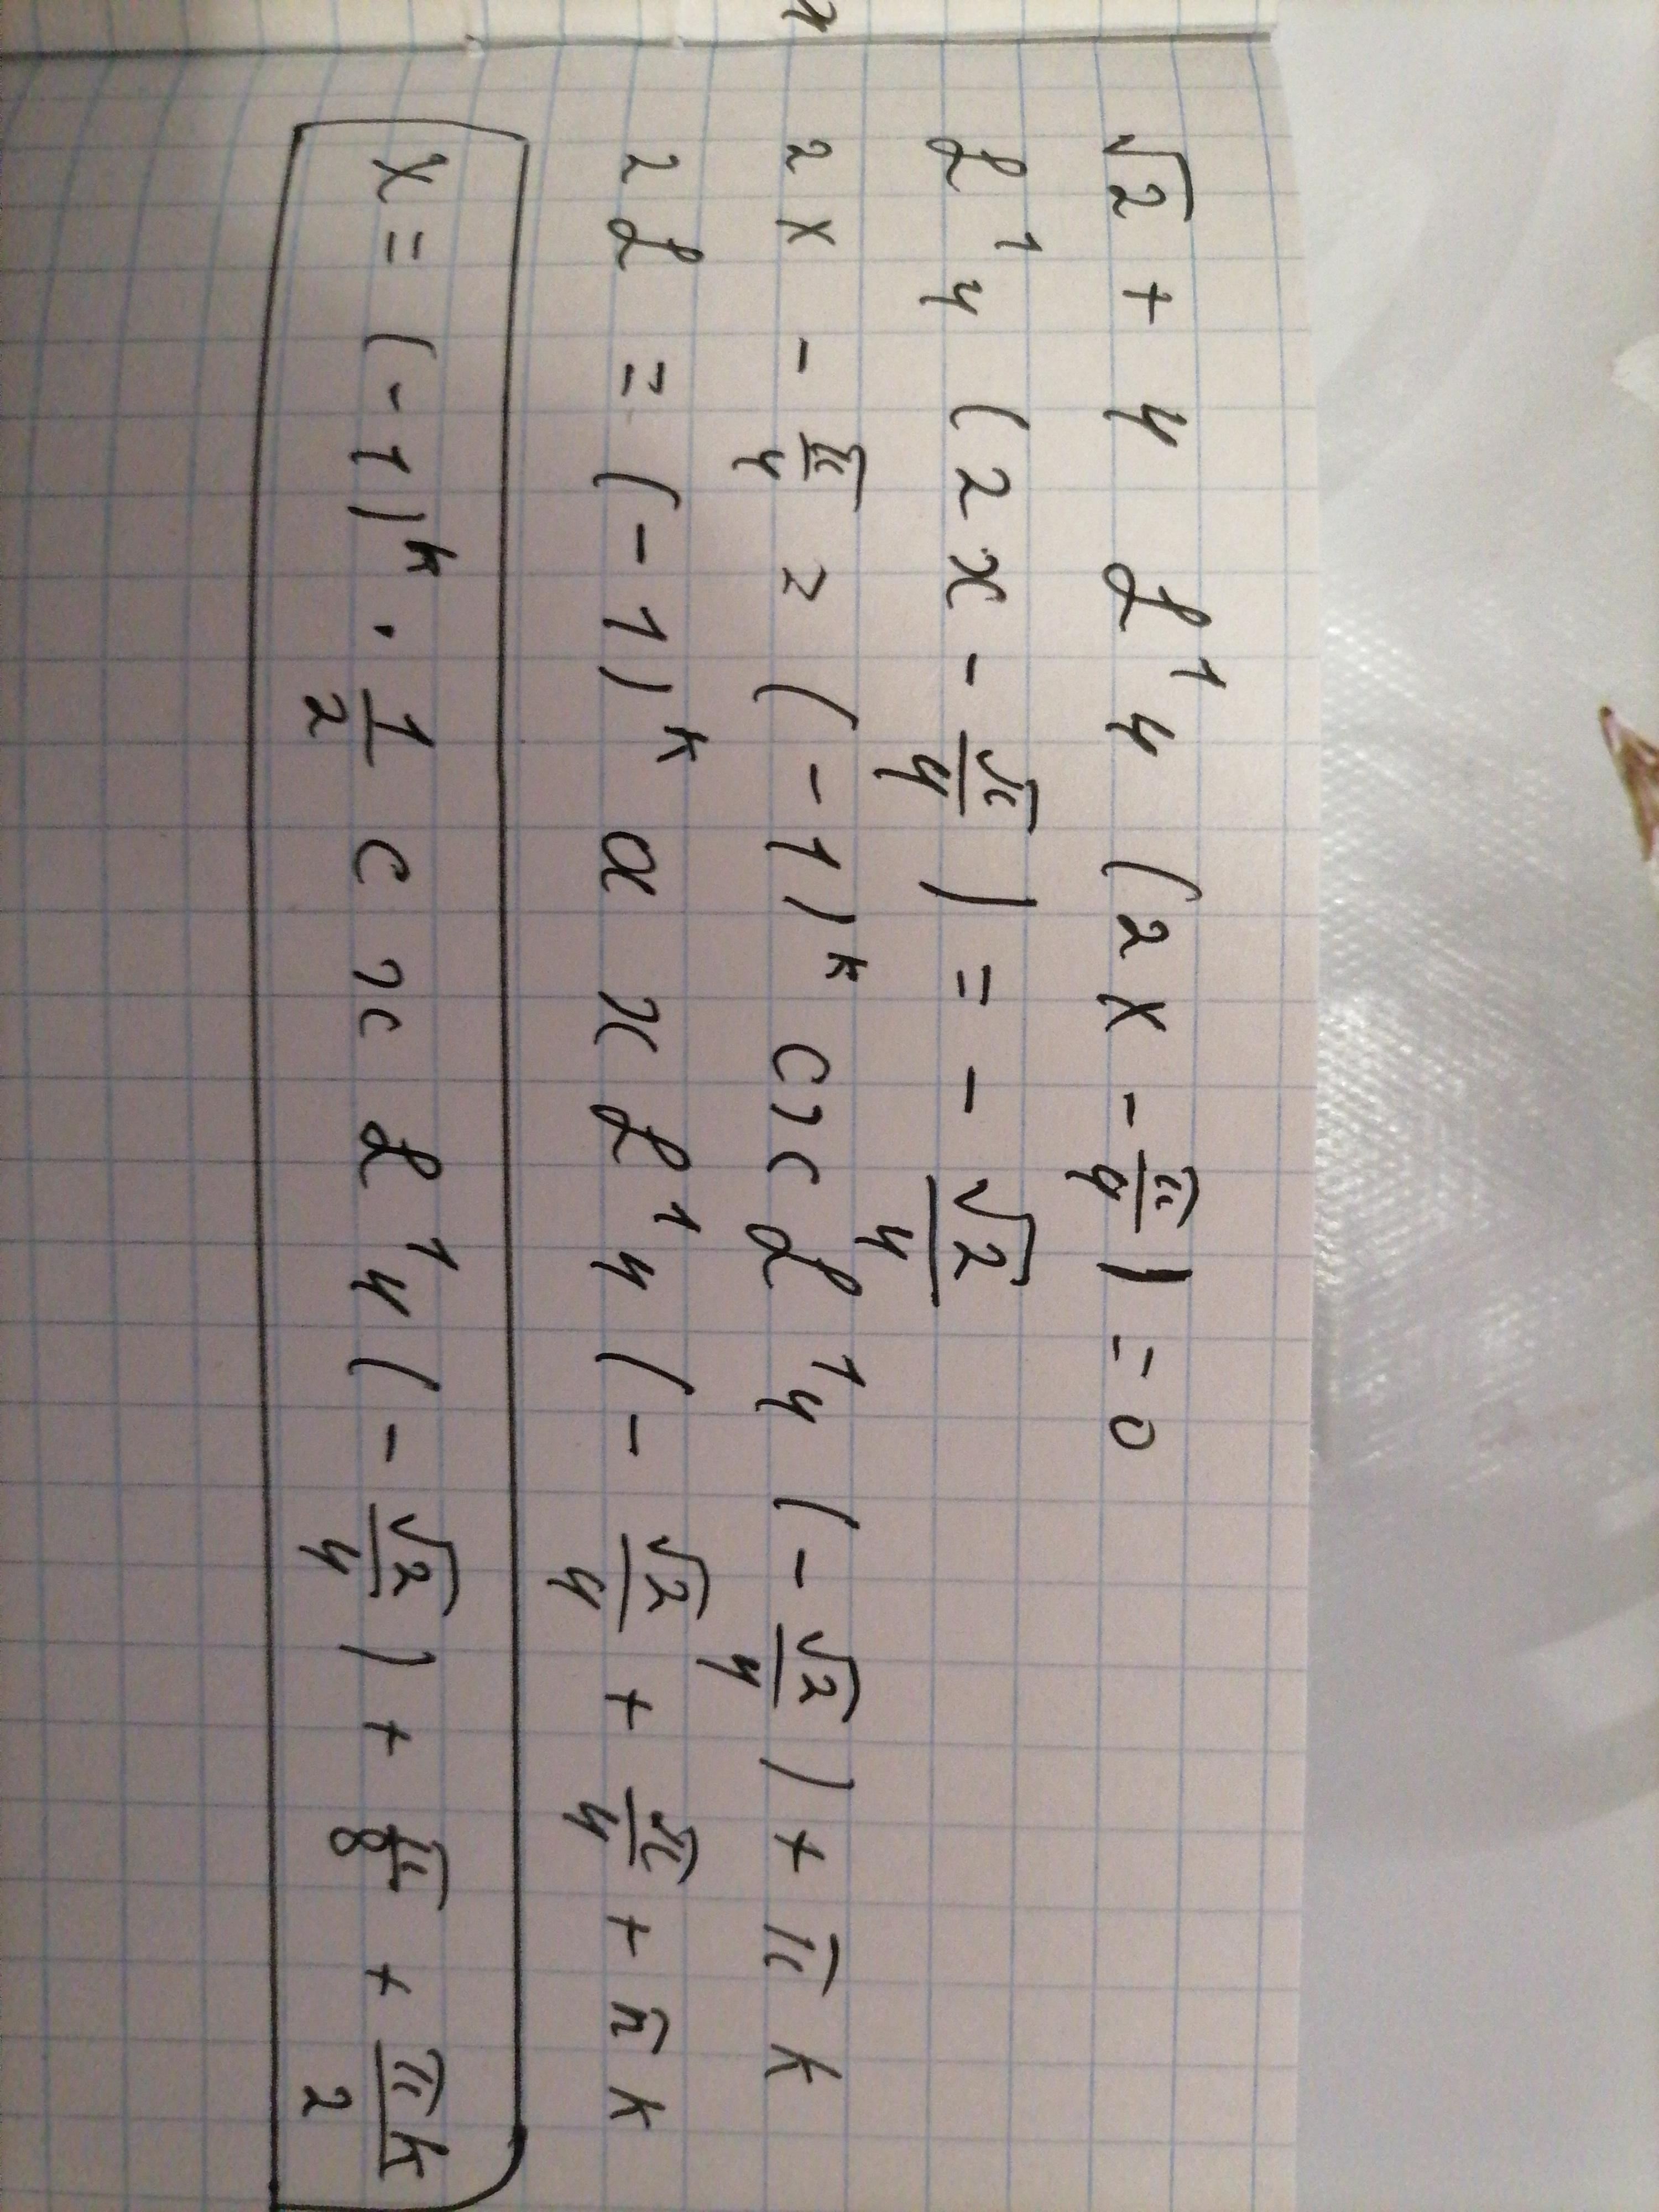 √2 + 4 L¹4 (2x - π/4) = 0
L¹4 (2x - π/4) = - √2/4
2x - π/4 = (-1)ᵏ c π L¹4 (- √2/4) + πk
2L = (-1)ᵏ a π L¹4 (- √2/4 + π/4 + πk
x = (-1)ᵏ · 1/2 c π L¹4 (- √2/4) + π/8 + πk/2